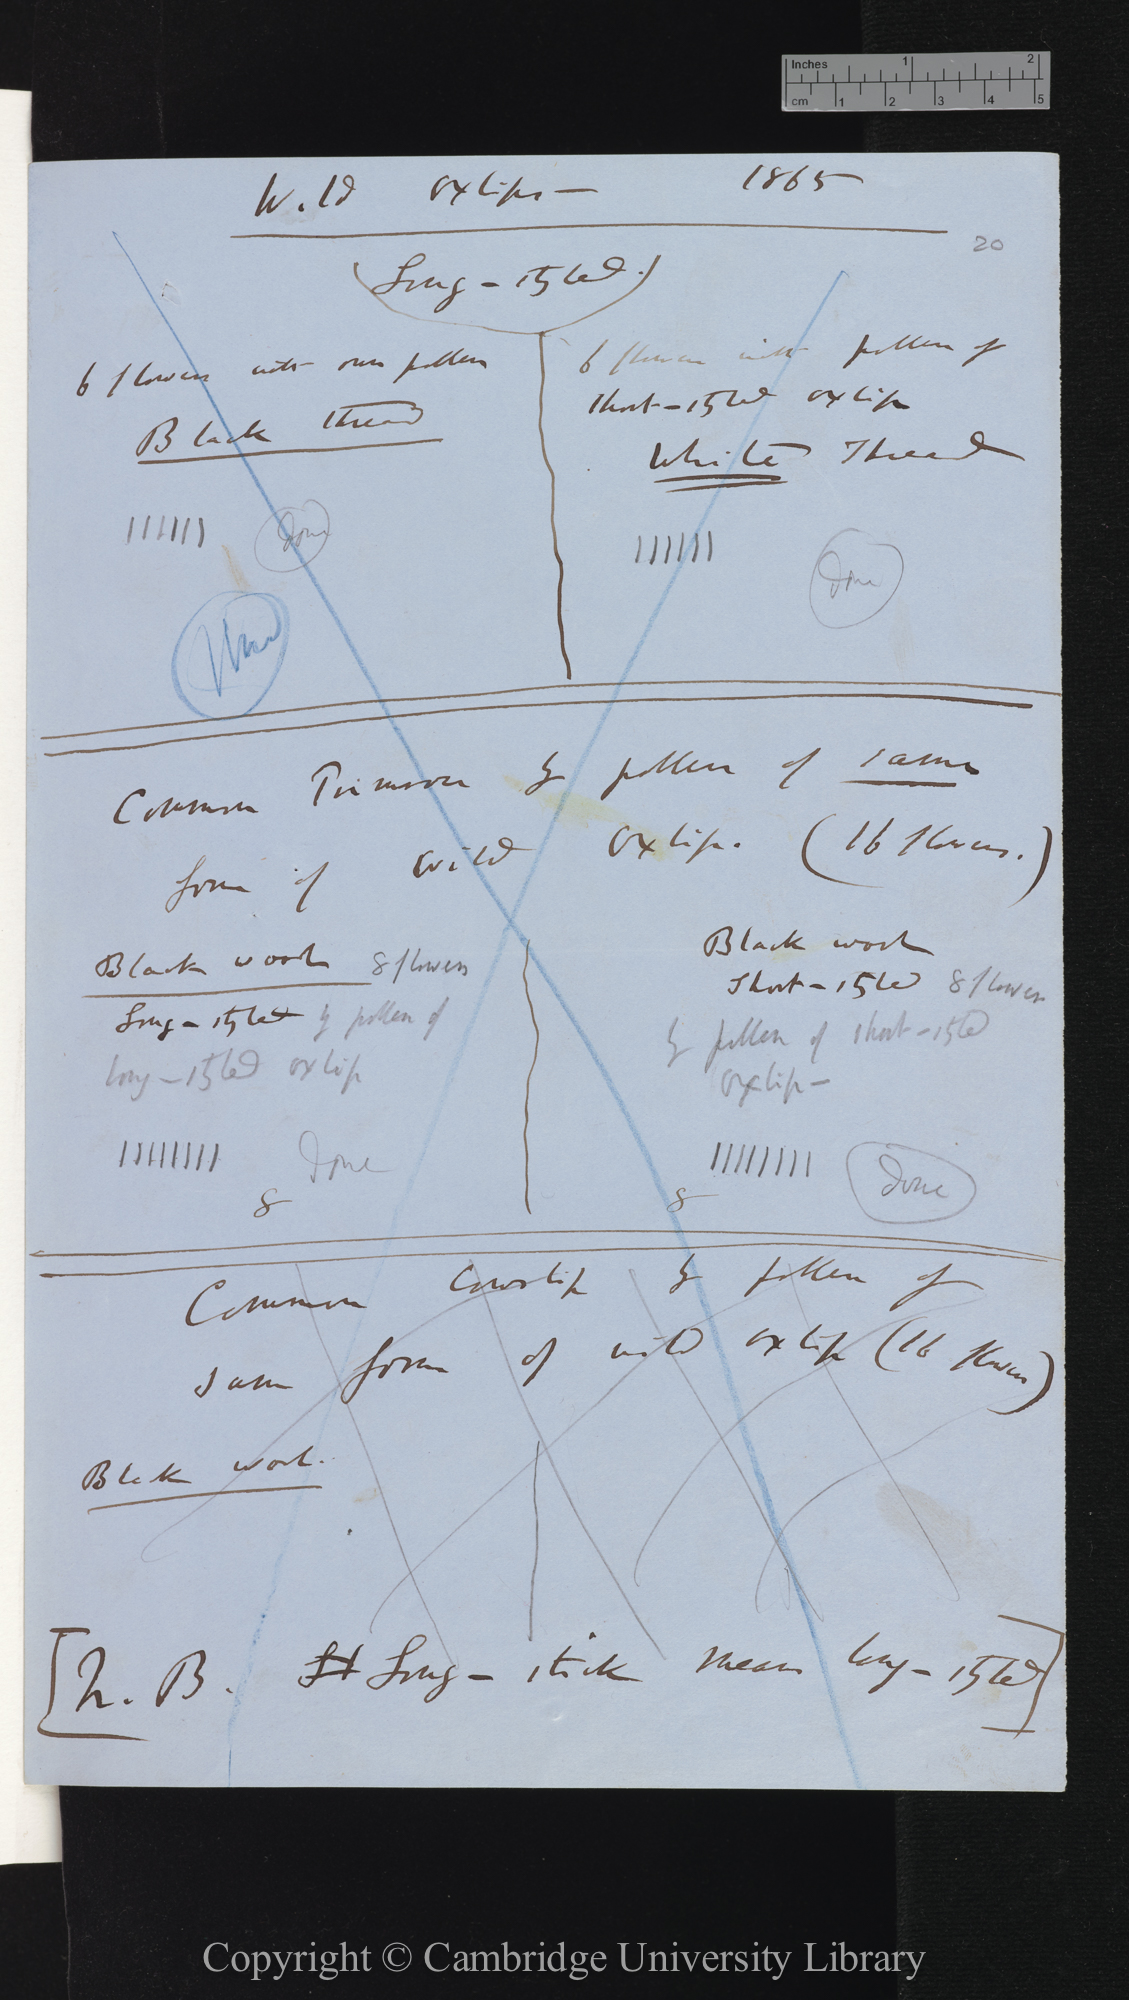 Inches 1 2
cm 1 2 3 4 5
Wild oxlips — 1865
20
(Long-styled.)
6 flowers with own pollen
Black thread
|||||| done
6 flowers with pollen of
short-styled oxlip
White Thread
|||||| done
Common Primrose by pollen of same
form of wild oxlip. (16 flowers.)
Black wool 8 flowers
Long-styled by pollen of
long-styled oxlip
|||||||| done
8
Black wool
Short-styled 8 flowers
by pollen of short-styled
oxlip —
|||||||| done
8
Common Cowslip by pollen of
same form of wild oxlip (16 flowers)
Black wool.
[N.B. Long-stick means long-styled]
Copyright © Cambridge University Library